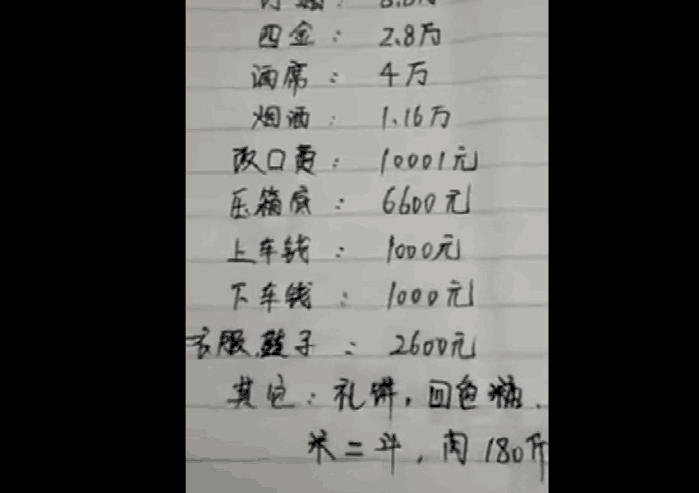 四金： 2.8万
酒席： 4万
烟酒： 1.16万
改口费： 10001元
压箱底： 6600元
上车钱： 1000元
下车钱： 1000元
衣服鞋子： 2600元
其它：礼饼，回色糖.
米二斗，肉180斤